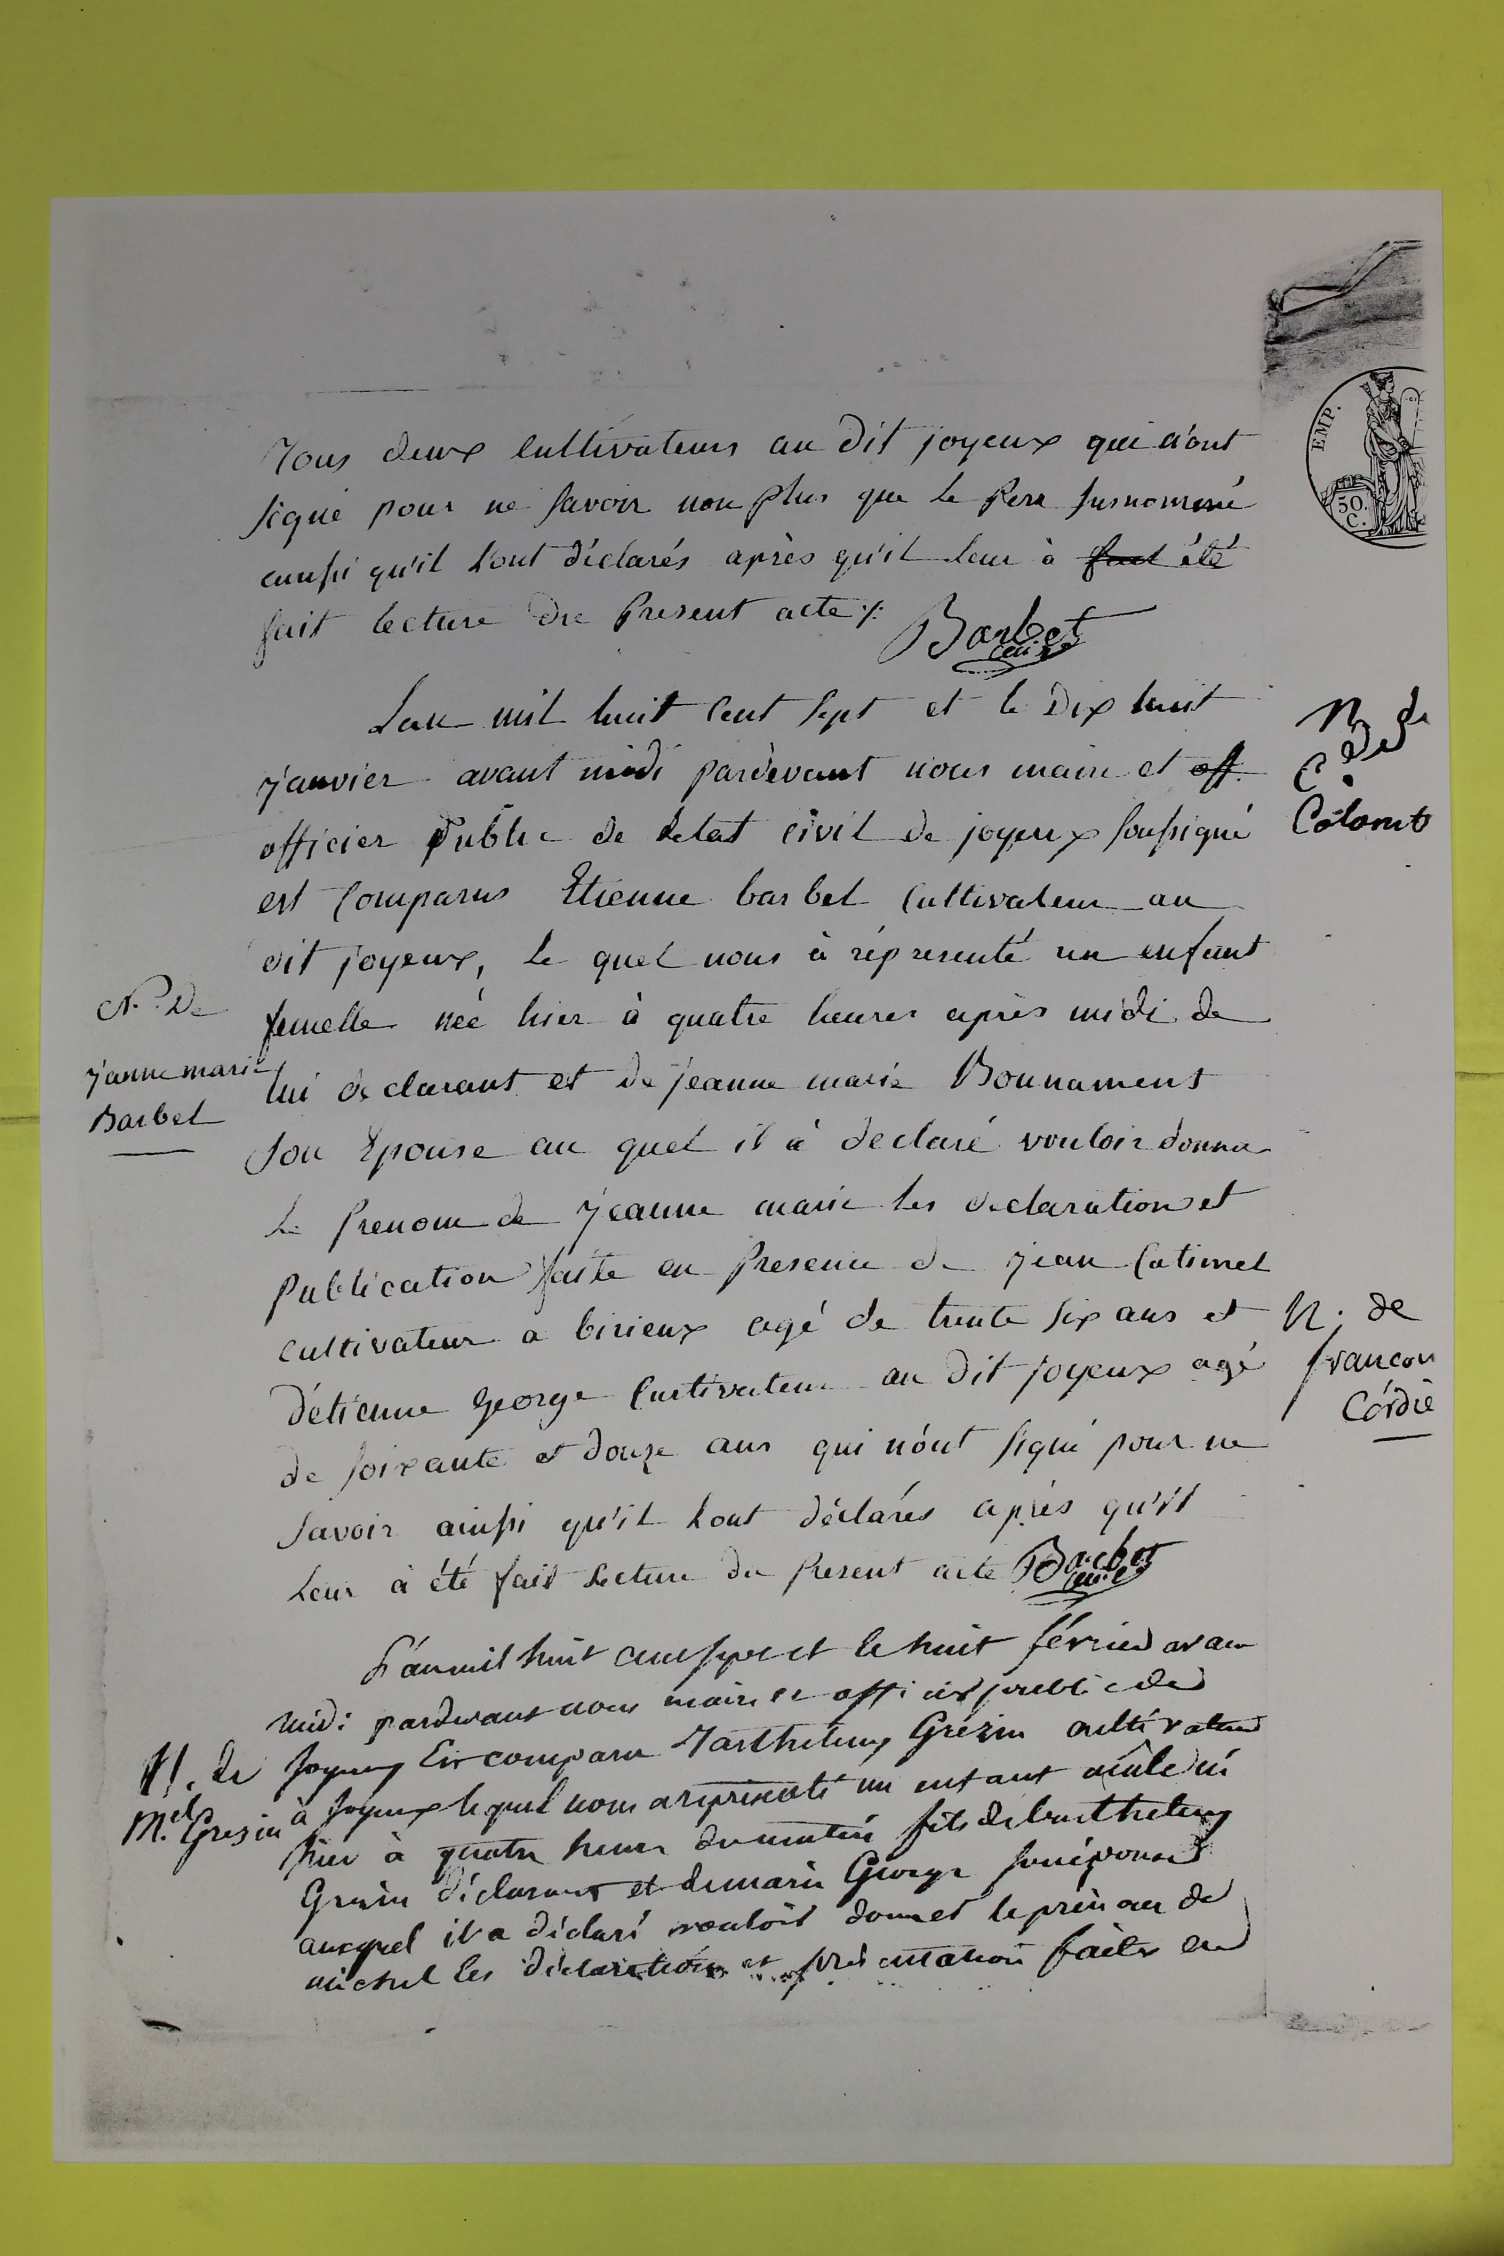 Tous deux cultivateurs au dit joyeux qui n'ont
signé pour ne savoir non plus que le Pere susnommé
ainsi qu'il l'ont déclarés après qu'il leur à fait été
fait lecture du Present acte ./.
Barbet
maire
Lan mil huit cent sept et le Dix huit
janvier avant midi pardevant nous maire et off.
officier Public de letat civil de joyeux soussigné
est comparus Etienne barbet cultivateur au
dit joyeux, le quel nous à réprésenté un enfant
femelle née hier à quatre heures après midi de
lui declarant et de jeanne marie Bonnament
son Epouse au quel il à declaré vouloir donner
le Prenom de jeanne marie les declaration et
Publication faite en Presence de jean Catimel
cultivateur a birieux agé de trente six ans et
d'étienne george cultivateur au dit joyeux agé
de soixante et douze ans qui n'ont signé pour ne
savoir ainsi qu'il l'ont déclarés après qu'il
leur à été fait lecture du Present acte Barbet
maire
N. De
janne marie
Barbet
L'an mil huit cent sept et le huit février avant
midi pardevant nous maire et officier public de
Joyeux Est comparu Barthelemy Grézin cultivateur
à Joyeux lequel nous a représenté un enfant mâle né
hier à quatre heures du matin fils de barthelemy
Grezin déclarant et de marie George son épouse
auquel il a déclaré vouloir donner le prénom de
michel les déclaration et présentation faites en
N. de
M.el Grezin
N. de
Colomb
N. de
francon
Cordié
EMP.
50.
C.